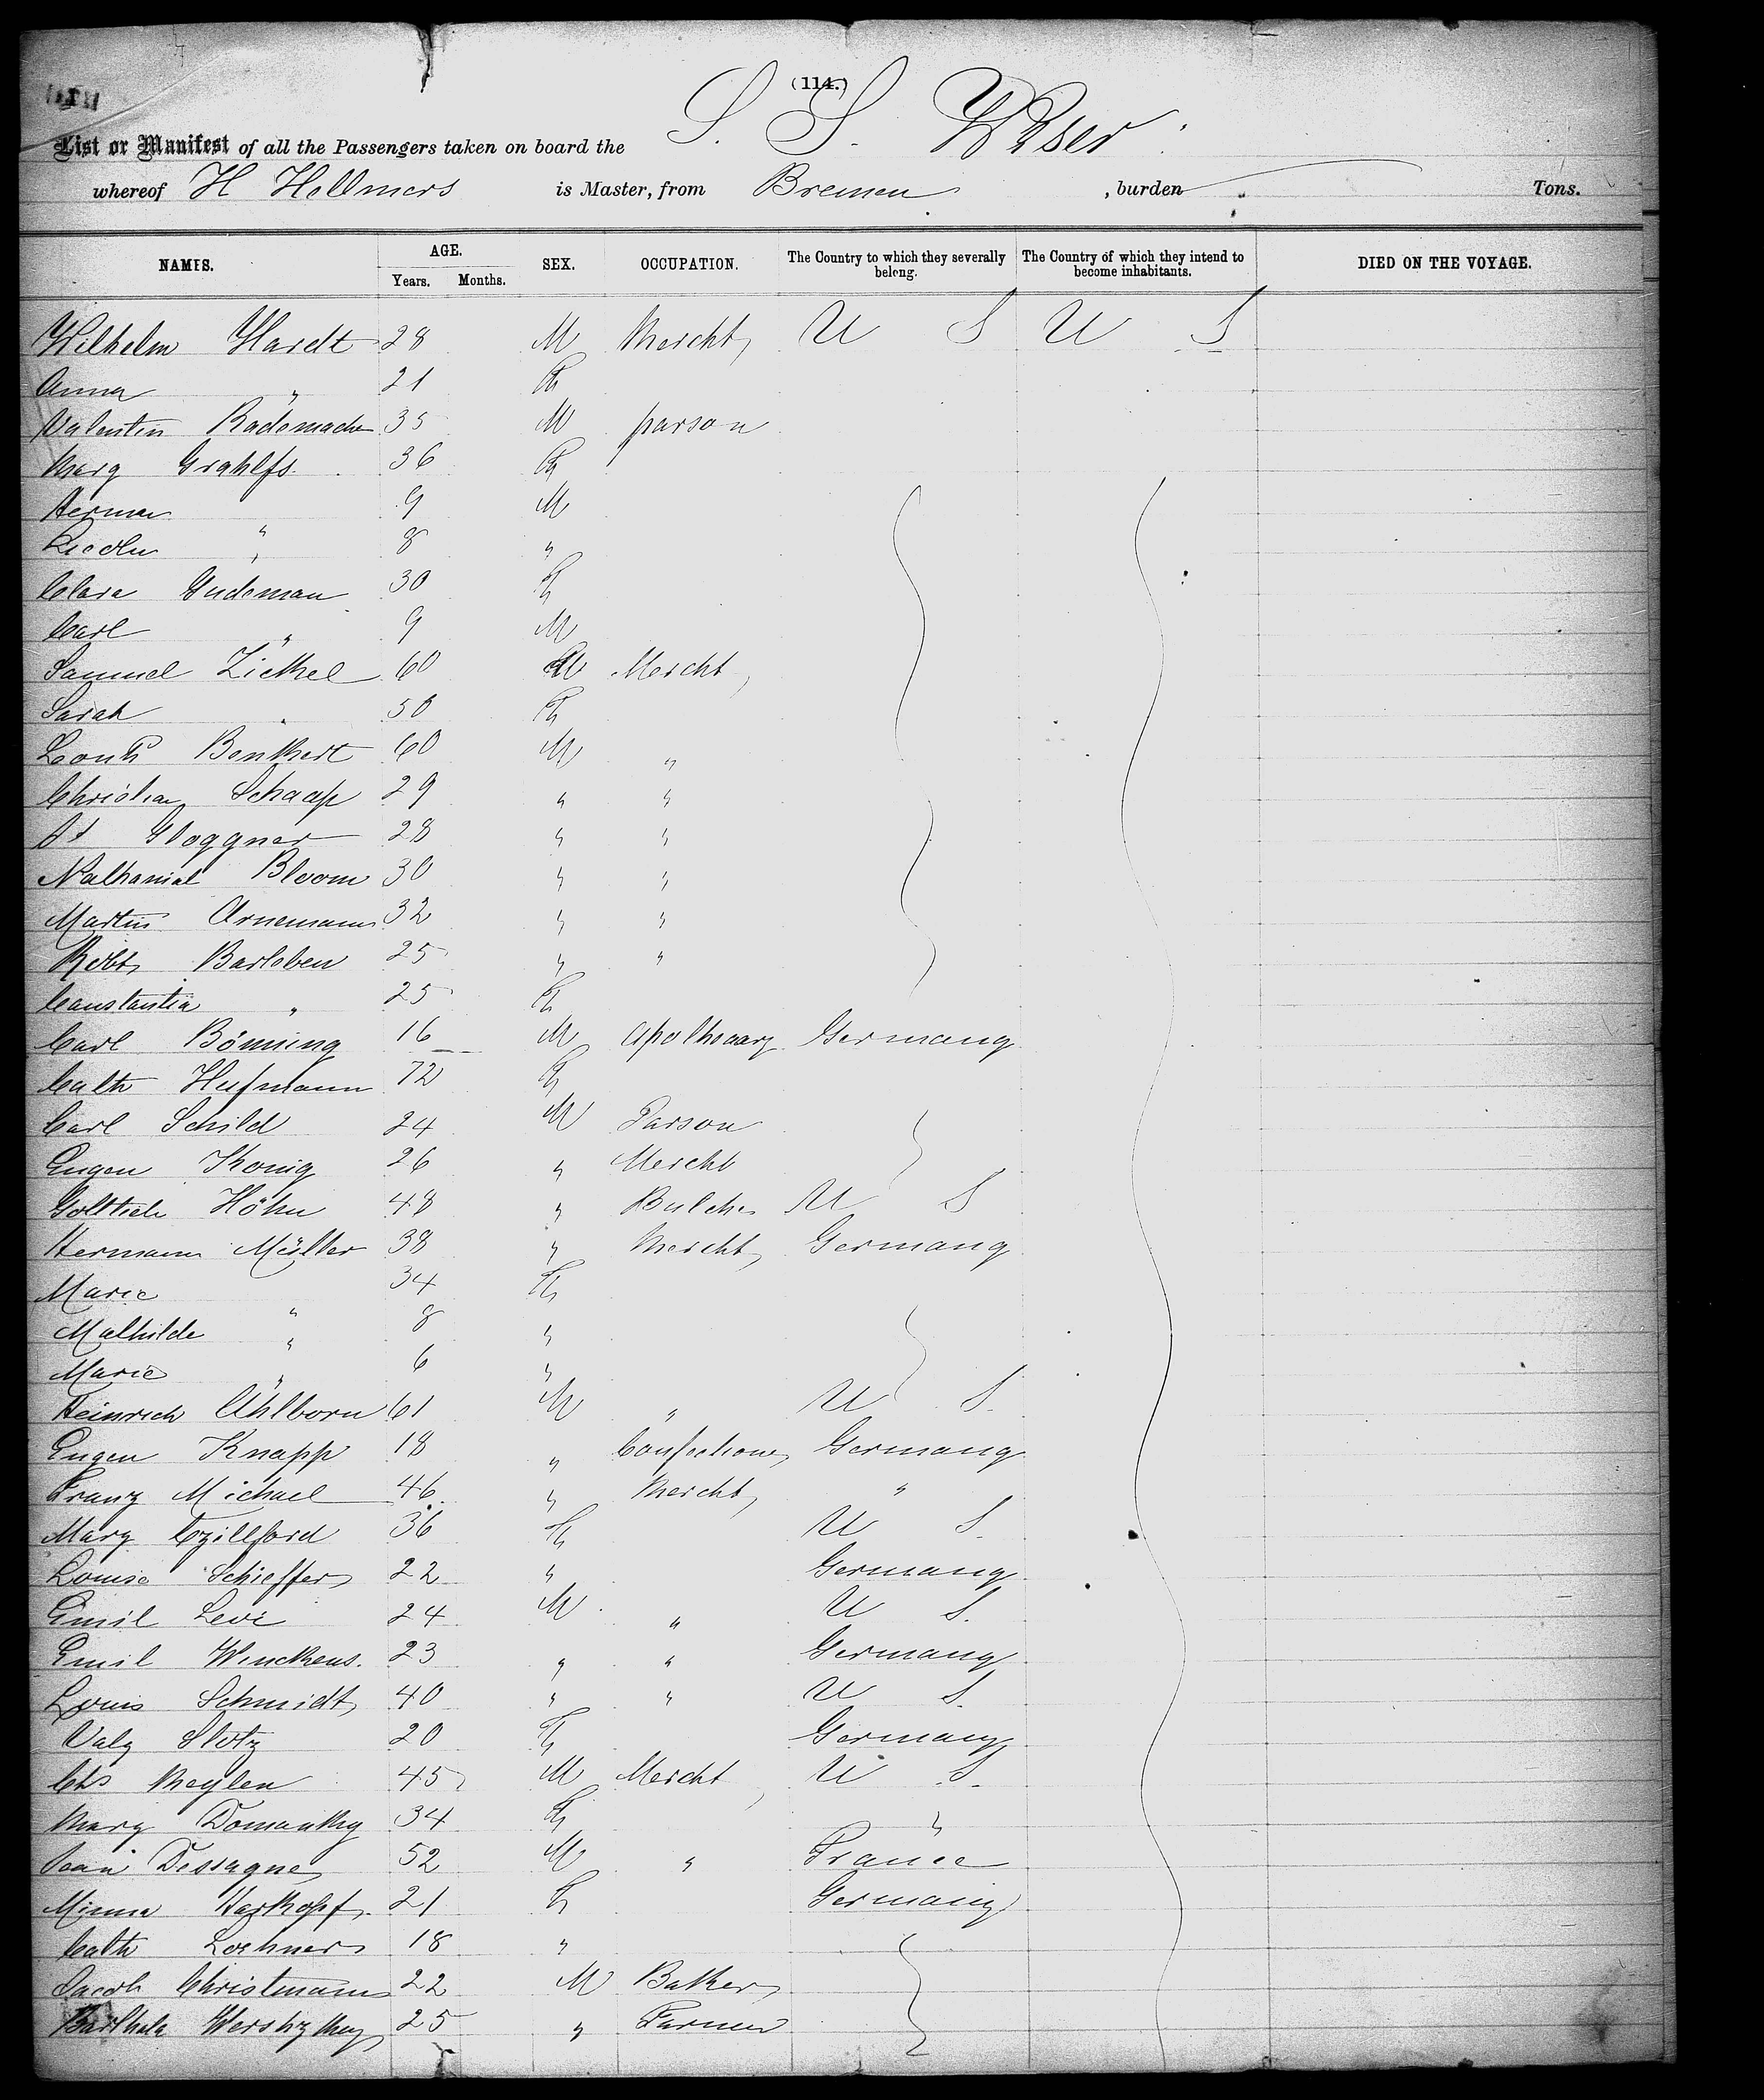 (114.)
List or Manifest of all the Passengers taken on board the S. S. Weser
whereof H Hellmers is Master, from Bremen , burden Tons.
NAMES. AGE. Years. Months. SEX. OCCUPATION. The Country to which they severally belong. The Country of which they intend to become inhabitants. DIED ON THE VOYAGE.
Wilhelm Hardt 28 M Mercht, U S U S
Anna " 21 F
Valentin Rademacher 35 M parson
Marg Grahlfs. 36 F
Herman 9 M
" 8 "
Clara Gudeman 30 F
Carl " 9 M
Samuel Zickel 60 M Mercht,
Sarah " 50 F
Louis Benkert 60 M "
Christian Schaap 29 " "
Gloggner 28 " "
Nathanial Bloom 30 " "
Martin Arnemann 32 " "
Robt, Barleben 25 " "
Constantia " 25 F
Carl Bönning 16 M Apothecary Germany
Cath Hufmann 72 F
Carl Schild 24 M Parson
Eugen Konig 26 " Mercht
Gottlieb Höhn 48 " Butcher U S
Hermann Müller 38 " Mercht, Germany
Marie " 34 F
Mathilde " 8 "
Marie " 6 "
Heinrich Ühlborn 61 M " U S.
Eugen Knapp 18 " Confectioner Germany
Franz Michael 46 " Mercht, "
Mary 36 F U S.
Louise Schieffer 22 " Germany
Emil Levi 24 M " U S.
Emil Winckens. 23 " " Germany
Louis Schmidt 40 " " U S.
Valy Slotz 20 F Germany
Chs Meylen 45 M Mercht, U S.
Mary Domanky 34 F "
Jean Dessagne 52 M " France
Minna Harkopf. 21 F Germany
Cath Lochner 18 "
Jacob Christmann 22 M Baker
25 " Farmer